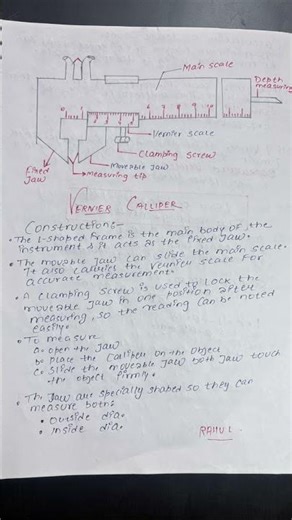 Main scale
Depth
measuring
Vernier scale
Clamping screw
Movable Jaw
Fixed
Jaw
Measuring tip
VERNIER CALLIPER
Construction:-
• The L-shaped frame is the main body of the
instrument & it acts as the fixed jaw.
• The movable jaw can slide the main scale.
It also carries the vernier scale for
accurate measurement.
• A clamping screw is used to lock the
movable jaw in one position after
measuring, so the reading can be noted
easily.
• To measure
a. open the jaw
b. place the calliper on the object
c. slide the moveable jaw both jaw touch
the object firmly.
• The jaw are specially shaped so they can
measure both:
• outside dia.
• inside dia.
RAHUL